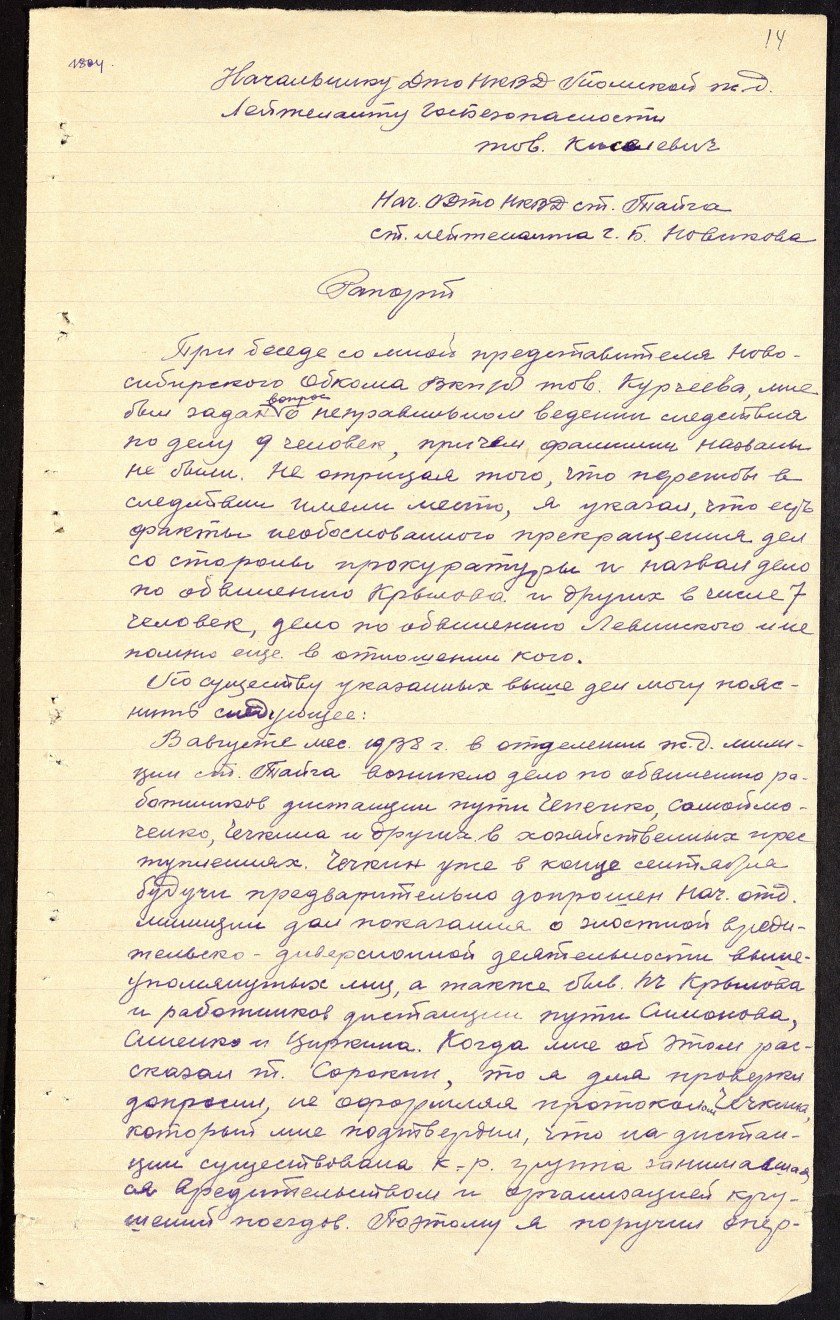 14
1894.
Начальнику ДТО НКВД Томской ж.д.
Лейтенанту Госбезопасности
тов. Киселевич
Нач. ОДТО НКВД ст. Тайга
ст. лейтенанта г. б. Новикова
Рапорт
При беседе со мной представителя Ново-
сибирского Обкома ВКП(б) тов. Курчеева, мне
был задан вопрос о неправильном ведении следствия
по делу 9 человек, причем фамилии названы
не были. Не отрицая того, что перегибы в
следствии имели место, я указал, что есть
факты необоснованного прекращения дел
со стороны прокуратуры и назвал дело
по обвинению Крылова и других в числе 7
человек, дело по обвинению Левинского и не
помню еще в отношении кого.
По существу указанных выше дел могу пояс-
нить следующее:
В августе мес. 1938 г. в отделении ж.д. мили-
ции ст. Тайга возникло дело по обвинению ра-
ботников дистанции пути Чепенко, Самойло-
ченко, Чечкина и других в хозяйственных прес
туплениях. Чечкин уже в конце сентября
будучи предварительно допрошен нач. отд.
милиции дал показания о злостной вреди-
тельско-диверсионной деятельности выше-
упомянутых лиц, а также быв. ПЧ Крылова
и работников дистанции пути Симонова,
Синенко и Циркина. Когда мне об этом рас-
сказал т. Сорокин, то я для проверки
допросил, не оформляя протоколом Чечкина,
который мне подтвердил, что на дистан-
ции существовала к-р. группа занимавшая
ся вредительством и организацией кру-
шений поездов. Поэтому я поручил опер-